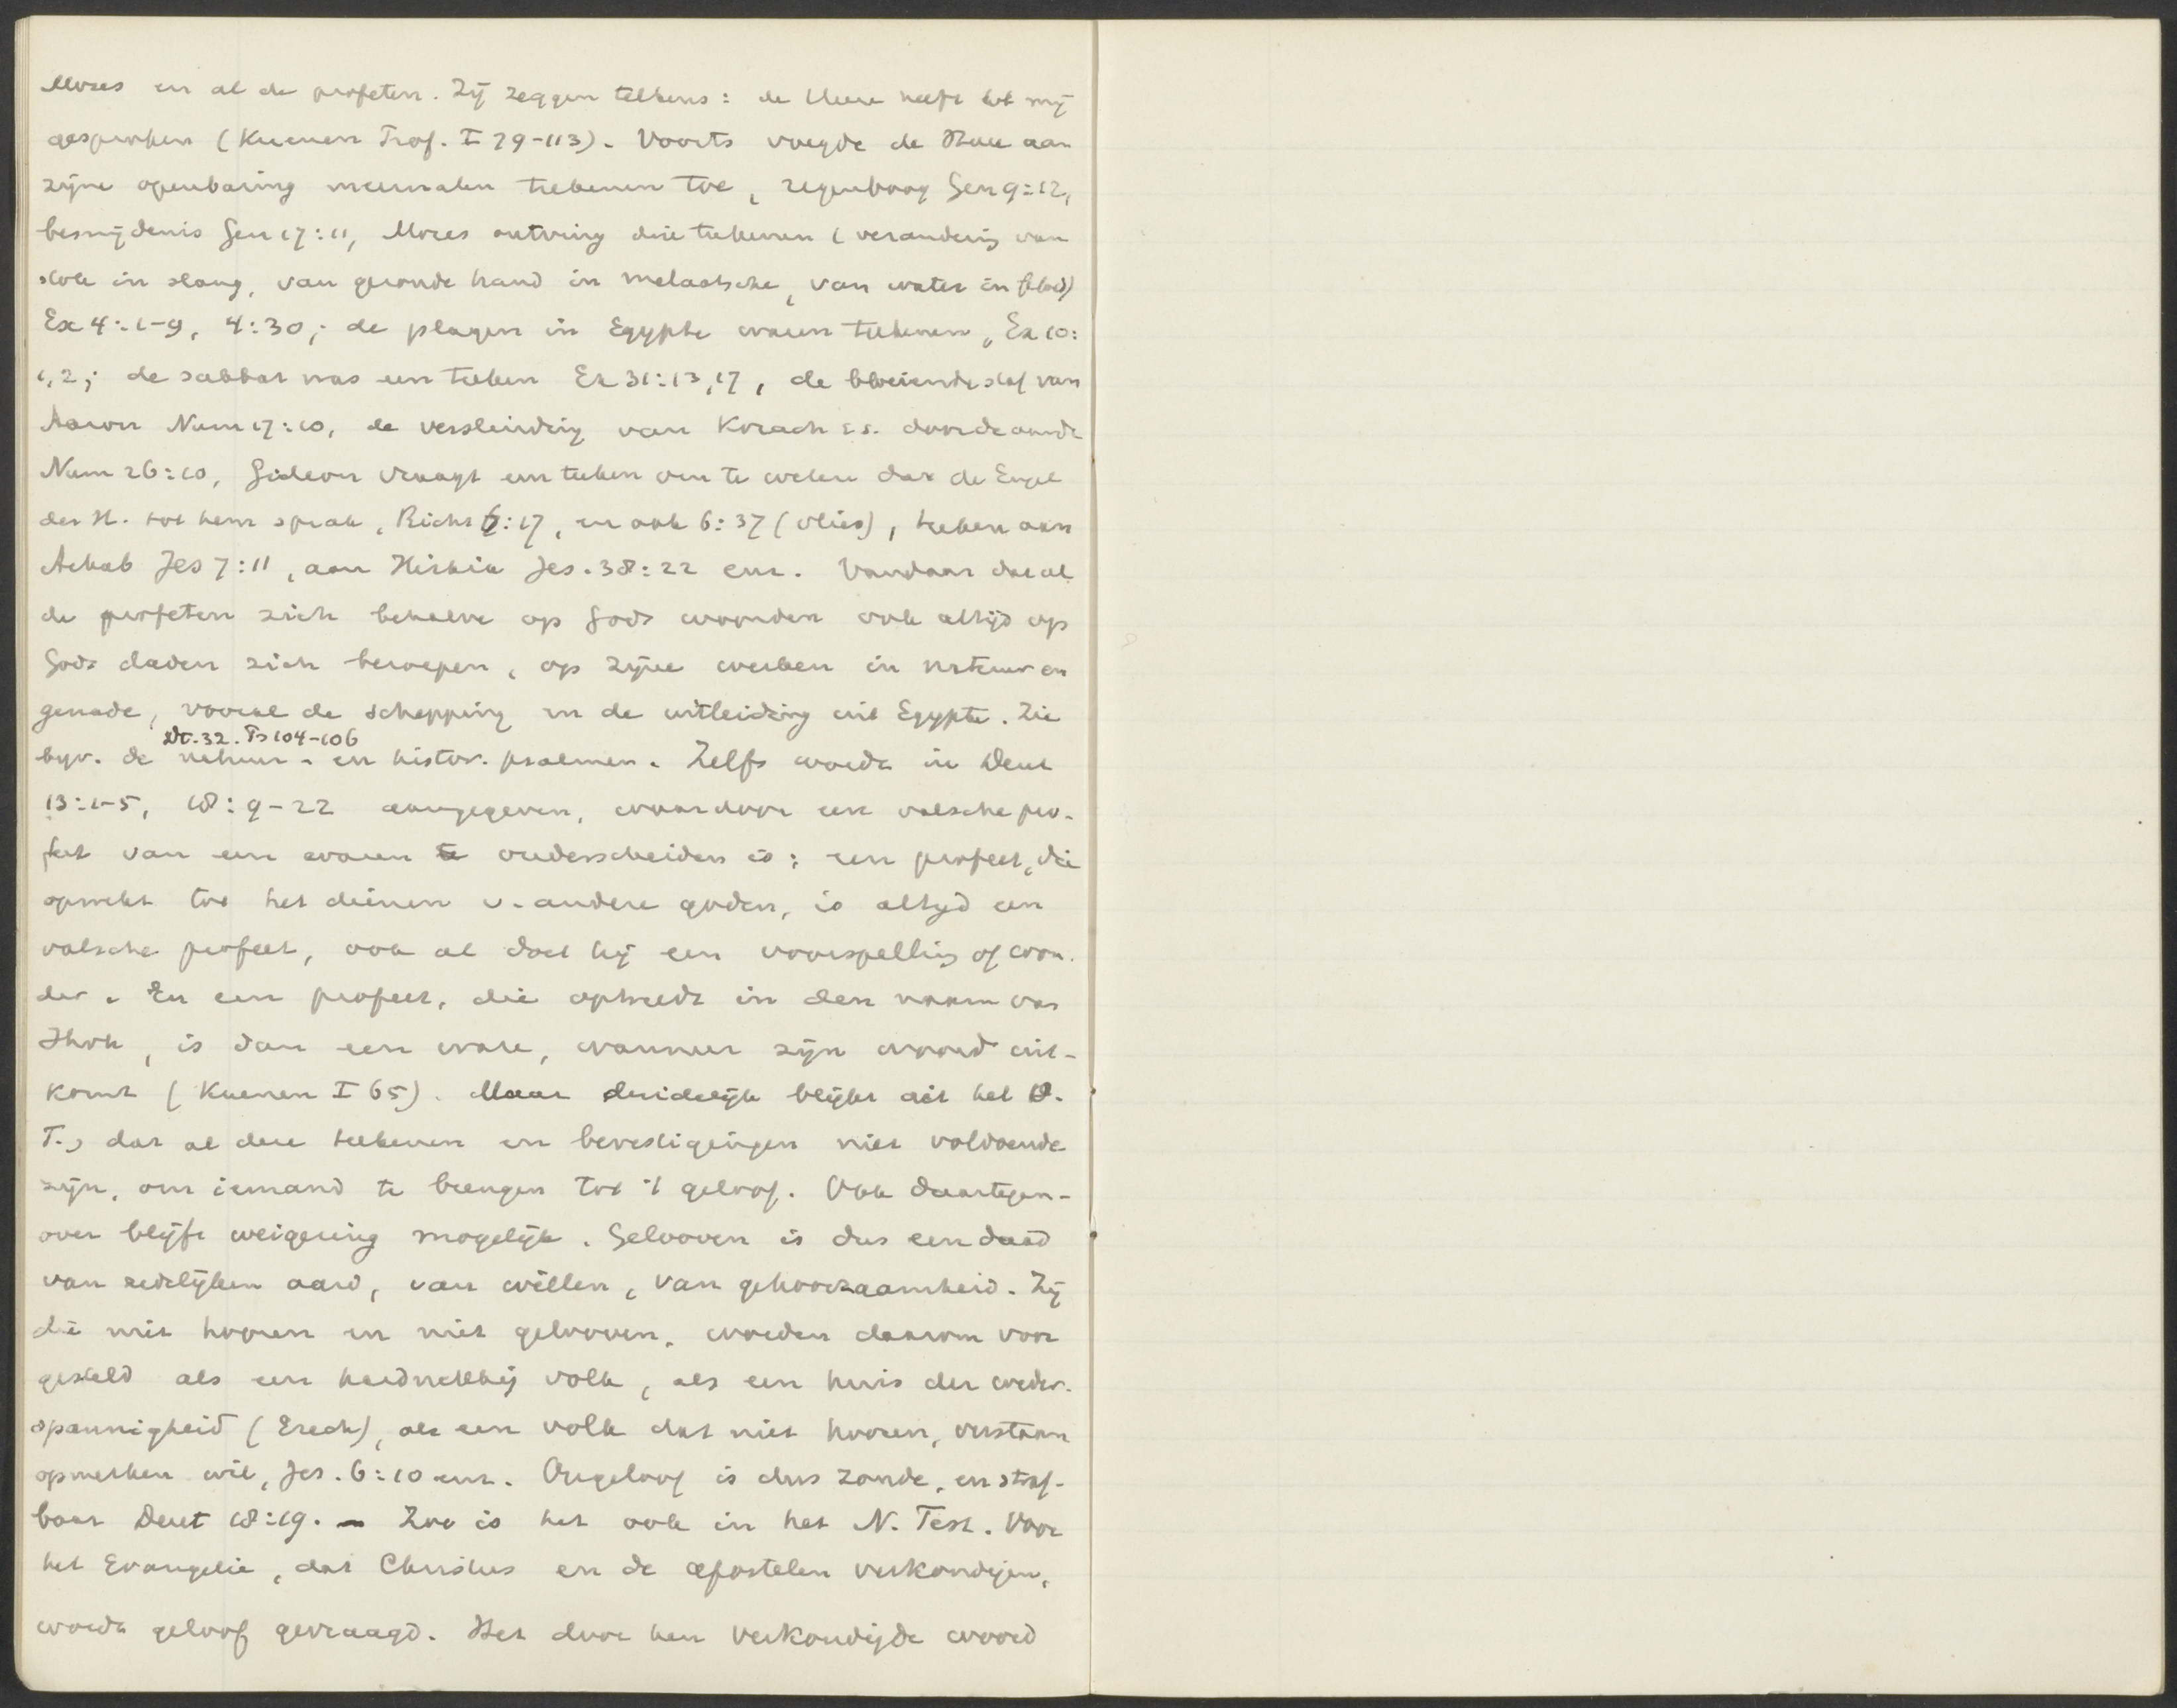 Mozes en al de profeten. Zij zeggen telkens: de Heere heeft tot mij
gesproken (Kuenen Prof. I 79-113). Voorts voegde de Heere aan
zijne openbaring meermalen teekenen toe, regenboog Gen 9:12,
besnijdenis Gen 17:11, Mozes ontving drie teekenen (verandering van
stok in slang, van gezonde hand in melaatsche, van water in bloed)
Ex 4:1-9, 4:30; de plagen in Egypte waren teekenen, Ex 10:
1,2; de sabbat was een teeken Ex 31:13,17, de bloeiende staf van
Aaron Num 17:10, de verslinding van Korach c.s. door de aarde
Num 26:10, Gideon vraagt een teeken om te weten dat de Engel
des H. tot hem sprak, Richt 6:17, en ook 6:37 (vlies), teeken aan
Achab Jes 7:11, aan Hiskia Jes. 38:22 enz. Vandaar dat al
de profeten zich behalve op Gods woorden ook altijd op
Gods daden zich beroepen, op zijne werken in natuur en
genade, vooral de schepping en de uitleiding uit Egypte. Zie
Dt. 32. Ps 104-106
bijv. de natuur- en histor. psalmen. Zelfs wordt in Deut
13:1-5, 18:9-22 aangegeven, waardoor een valsche pro-
feet van een waren te onderscheiden is: een profeet, die
opwekt tot het dienen v. andere goden, is altijd een
valsche profeet, ook al doet hij een voorspelling of won-
der. En een profeet, die optreedt in den naam van
Jhvh, is dan een ware, wanneer zijn woord uit-
komt (Kuenen I 65). Maar duidelijk blijkt uit het O.
T., dat al deze teekenen en bevestigingen niet voldoende
zijn, om iemand te brengen tot 't geloof. Ook daartegen-
over blijft weigering mogelijk. Gelooven is dus een daad
van zedelijken aard, van willen, van gehoorzaamheid. Zij
die niet hooren en niet gelooven, worden daarom voor
gesteld als een hardnekkig volk, als een huis der weder-
spannigheid (Ezech), als een volk dat niet hooren, verstaan
opmerken wil, Jes. 6:10 enz. Ongeloof is dus zonde, en straf-
baar Deut 18:19. — Zoo is het ook in het N. Test. Voor
het Evangelie, dat Christus en de apostelen verkondigen,
wordt geloof gevraagd. Het door hen verkondigde woord